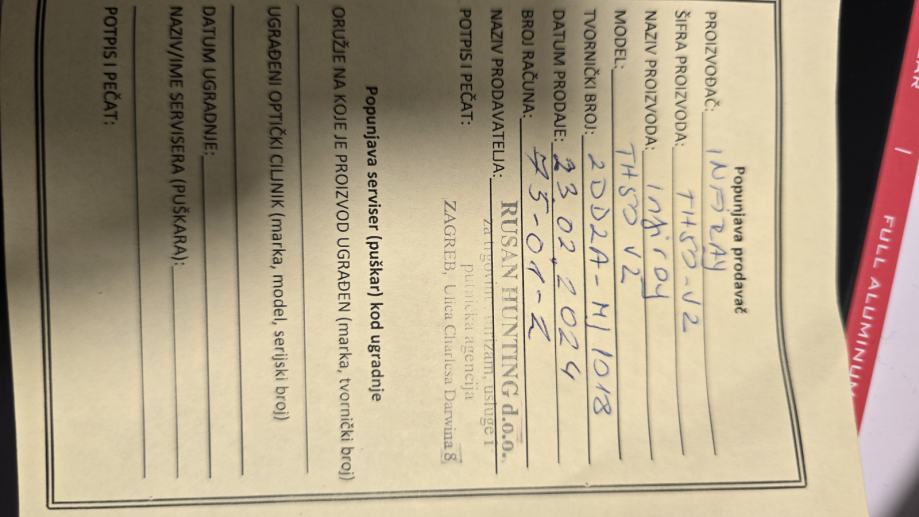 Popunjava prodavač
PROIZVOĐAČ: INFIRAY
ŠIFRA PROIZVODA: TH50-V2
NAZIV PROIZVODA: Infiray
MODEL: TH50 V2
TVORNIČKI BROJ: 2DD2A-M11018
DATUM PRODAJE: 23.02.2024
BROJ RAČUNA: 75-01-2
NAZIV PRODAVATELJA: RUSAN HUNTING d.o.o.
za trgovinu, turizam, usluge i
POTPIS I PEČAT: putnička agencija
ZAGREB, Ulica Charlesa Darwina 8
Popunjava serviser (puškar) kod ugradnje
ORUŽJE NA KOJE JE PROIZVOD UGRAĐEN (marka, tvornički broj)
UGRAĐENI OPTIČKI CILJNIK (marka, model, serijski broj)
DATUM UGRADNJE:
NAZIV/IME SERVISERA (PUŠKARA):
POTPIS I PEČAT:
FULL ALUMINUM